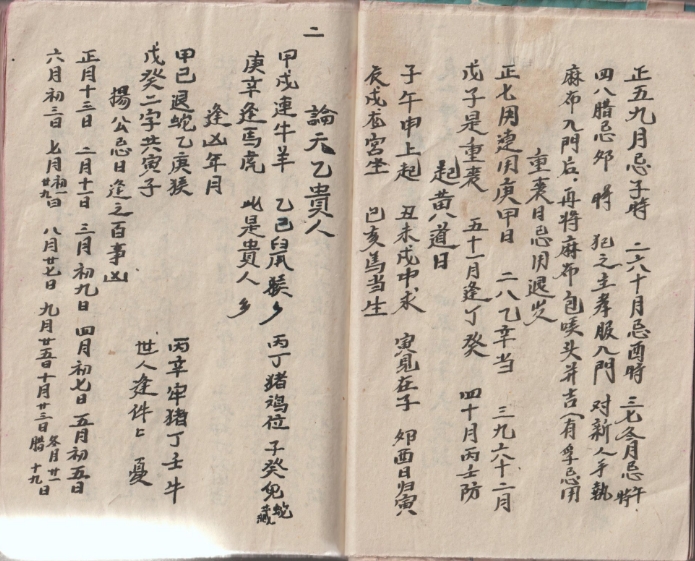 正五九月忌子時 二六十月忌酉時 三七冬月忌午時
四八腊忌夘時 犯之主孝服入門 对新人手執
麻布入門后，再将麻布包头并吉(有孕忌用
重喪日忌用退炭
正七用連用庚甲日 二八乙辛当 三九六十二月
戊子是重喪 五十一月逢丁癸 四十月丙壬防
起黄八道日
子午申上起 丑未戌中求 寅見在子 夘酉日归寅
辰戌龙宫坐 巳亥馬当生
二
論天乙貴人
甲戊連牛羊 乙己鼠猴乡 丙丁猪鸡位 子癸兔蛇藏
庚辛逢馬虎 此是貴人乡
逢凶年月
甲己退蛇乙庚猴 丙辛牢猪丁壬牛
戊癸二字共寅子 世人逢伴上憂
揚公忌日逢之百事凶
正月十三日 二月十一日 三月初九日 四月初七日 五月初五日
六月初三日 七月初一廿九日 八月廿七日 九月廿五日 十月廿三日 冬月廿一 腊十九日